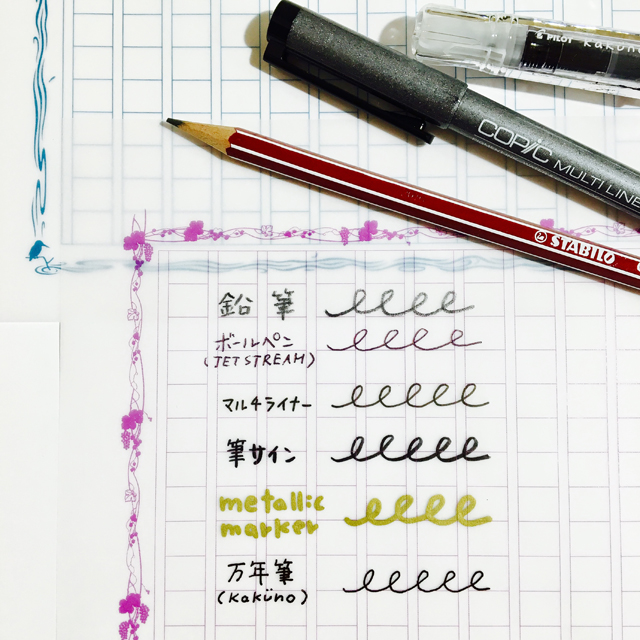 PILOT kaküno
COPIC MULTILINE
STABILO
鉛筆
ボールペン
(JETSTREAM)
マルチライナー
筆サイン
metallic
marker
万年筆
(kaküno)